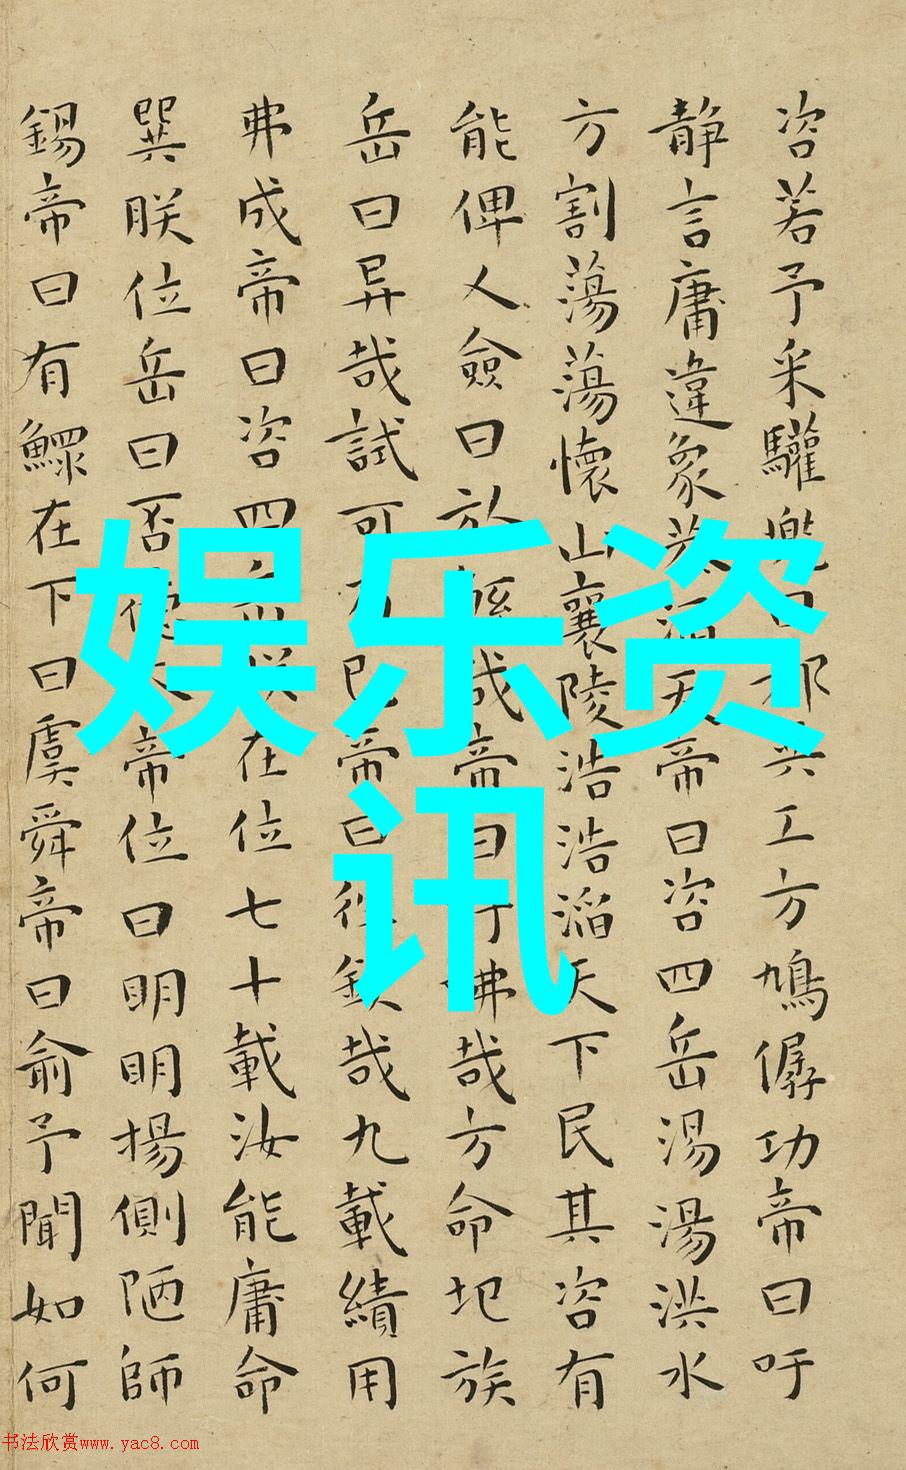 咨若予采驩兜曰都共工方鳩僝功帝曰吁
靜言庸違象恭滔天帝曰咨四岳湯湯洪水
方割蕩蕩懷山襄陵浩浩滔天下民其咨有
能俾人僉曰於鯀哉帝曰吁咈哉方命圮族
岳曰异哉試可乃已帝曰往欽哉九載績用
弗成帝曰咨四岳朕在位七十載汝能庸命
巽朕位岳曰否德忝帝位曰明明揚側陋師
錫帝曰有鰥在下曰虞舜帝曰俞予聞如何
娱乐资
讯
书法欣赏www.yac8.com